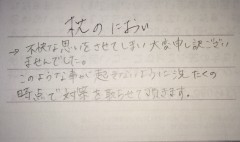 枕のにおい
→ 不快な思いをさせてしまい大変申し訳ござい
ませんでした。
このような事が起きないように洗たくの
時点で対策を取らせて頂きます。